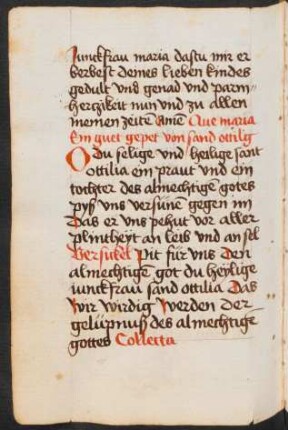 Junckfrau maria dastu mir er
berbest deines lieben kindes
gedult und genad und parm
herczikeit nun und zu allen
meinen zeite Ame Ave maria
Ein guet gepet von sand ottilg
O du selige und heilige sant
Ottilia ein praut und ein
tochter des almechtige gotes
pys uns versune gegen im
Das er uns pehut vor aller
plintheyt an leib und an sel
Versickel Pit fur uns Den
almechtige got du heylige
junckfrau sand ottilia Das
wir wirdig werden der
gelüpnuß des almechtige
gottes Collecta